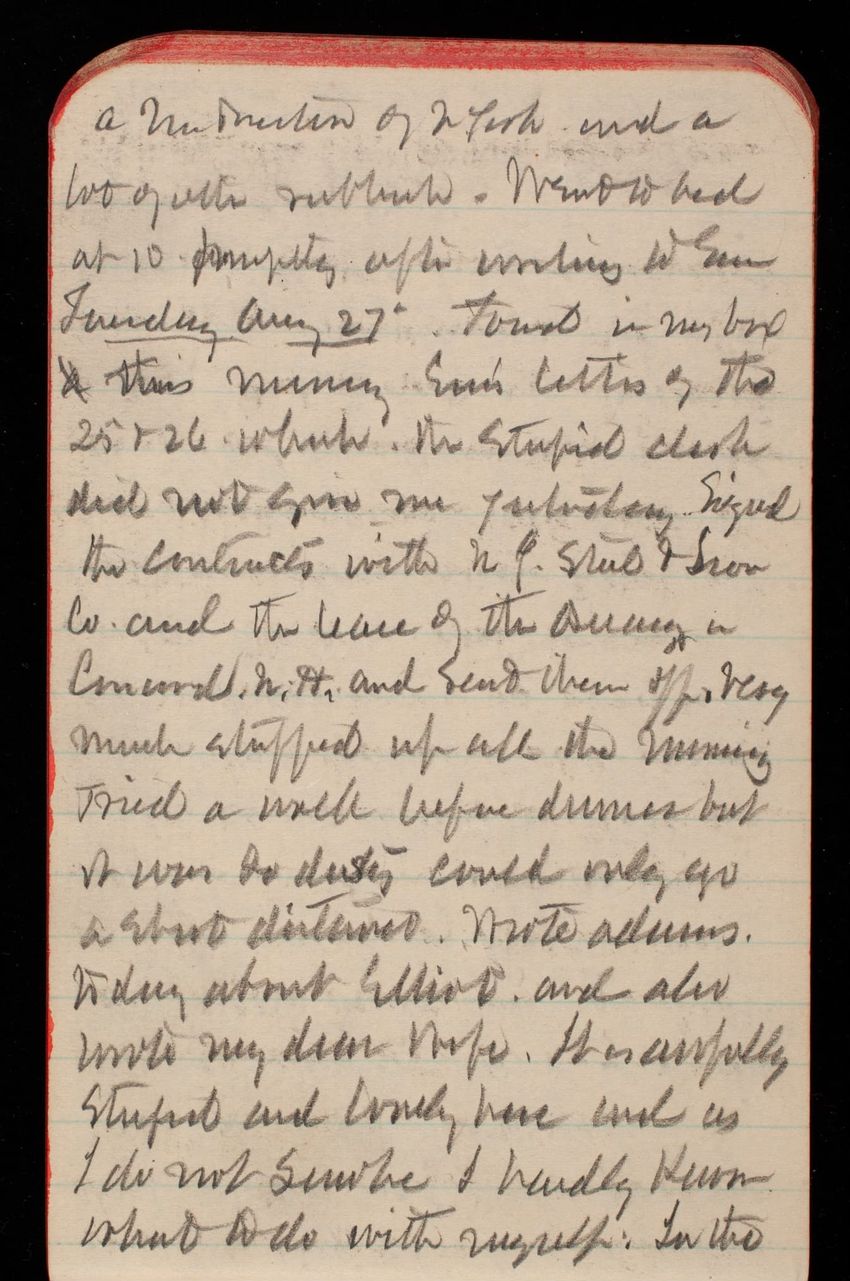 a                of N York and a
lot of other rubbish. Went to bed
at 10 promptly after writing to Em
Tuesday Aug 27". Found in my box
this morning Em's letters of the
25 & 26 which the stupid clerk
did not give me yesterday. Signed
the contracts with N J. Steel & Iron
Co. and the lease of the        in
Concord. N. H. and sent them off. Very
much stuffed up all the morning
Tried a walk before dinner but
it was so dusty could only go
a short distance. Wrote Adams.
today about Elliot. and also
wrote my dear Wife. It is awfully
stupid and lonely here and as
I do not smoke I hardly know
what to do with myself. In the